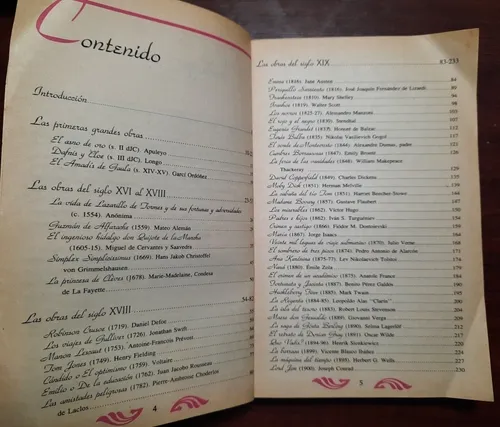 Contenido
Introducción
Las primeras grandes obras
El asno de oro (s. II dJC) Apuleyo
Dafnis y Cloe (s. III dJC) Longo
El Amadís de Gaula (s. XIV-XV) Garci Ordóñez
Las obras del siglo XVI al XVIII
La vida de Lazarillo de Tormes y de sus fortunas y adversidades
(c. 1554). Anónima
Guzmán de Alfarache (1559) Mateo Alemán
El ingenioso hidalgo don Quijote de la Mancha
(1605-15). Miguel de Cervantes y Saavedra
Simplex Simplicissimus (1669) Hans Jakob Christoffel
von Grimmelshausen
La princesa de Clèves (1678). Marie-Madelaine, Condesa
de La Fayette
Las obras del siglo XVIII
Robinson Crusoe (1719). Daniel Defoe
Los viajes de Gulliver (1726). Jonathan Swift
Manon Lescaut (1731). Antoine-François Prévost
Tom Jones (1749). Henry Fielding
Cándido o El optimismo (1759). Voltaire
Emilio o De la educación (1762). Juan Jacobo Rousseau
Las amistades peligrosas (1782). Pierre-Ambroise Chaderlos
de Laclos
4
Las obras del siglo XIX 83-233
Emma (1816). Jane Austen 84
Periquillo Sarniento (1816). José Joaquín Fernández de Lizardi
Frankenstein (1818). Mary Shelley
Ivanhoe (1819). Walter Scott
Los novios (1825-27). Alessandro Manzoni
El rojo y el negro (1830). Stendhal
Eugenia Grandet (1833). Honoré de Balzac
Tarás Bulba (1835). Nikolai Vasilievich Gogol
El conde de Montecristo (1844). Alexandre Dumas, padre
Cumbres Borrascosas (1847). Emily Brontë
La feria de las vanidades (1848). William Makepeace
Thackeray
David Copperfield (1849). Charles Dickens
Moby Dick (1851). Herman Melville
La cabaña del tío Tom (1852). Harriet Beecher Stowe
Madame Bovary (1857). Gustave Flaubert
Los miserables (1862). Victor Hugo
Padres e hijos (1862). Iván S. Turguéniev
Crimen y castigo (1866). Fiódor M. Dostoievski
María (1867). Jorge Isaacs
Veinte mil leguas de viaje submarino (1870). Julio Verne
El sombrero de tres picos (1874). Pedro Antonio de Alarcón
Ana Karenina (1875-77). Lev Nikolaievich Tolstoi
Naná (1880). Émile Zola
El crimen de un académico (1881). Anatole France
Fortunata y Jacinta (1887). Benito Pérez Galdós
Huckleberry Finn (1885). Mark Twain
La Regenta (1884-85). Leopoldo Alas "Clarín"
La isla del tesoro (1883). Robert Louis Stevenson
Maese don Gesualdo (1889). Giovanni Verga
La saga de Gösta Berling (1891). Selma Lagerlöf
El retrato de Dorian Gray (1891). Oscar Wilde
Quo Vadis? (1894-96). Henryk Sienkiewicz
La barraca (1898). Vicente Blasco Ibáñez
La máquina del tiempo (1895). Herbert G. Wells
Lord Jim (1900). Joseph Conrad 230
5